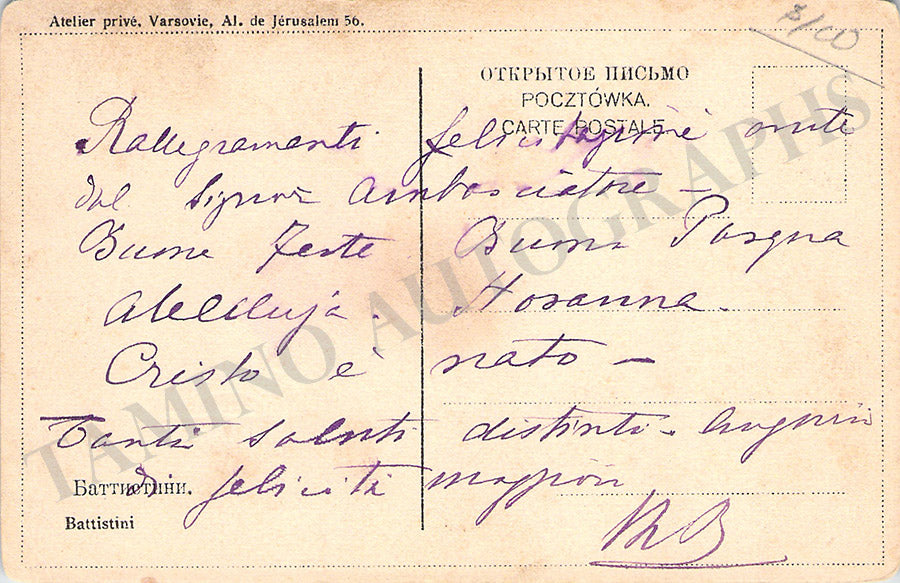 Atelier privé, Varsovie, Al. de Jérusalem 56.
8/00
ОТКРЫТОЕ ПИСЬМО
POCZTÓWKA.
CARTE POSTALE
Rallegramenti felicitazioni
dal Signor Ambasciatore –
Buone Feste Buona Pasqua
Alleluja. Hosanna.
Cristo è nato –
Tanti saluti distinti – Auguri
di felicità maggiori
MB
Баттистини.
Battistini
TAMINO AUTOGRAPHS